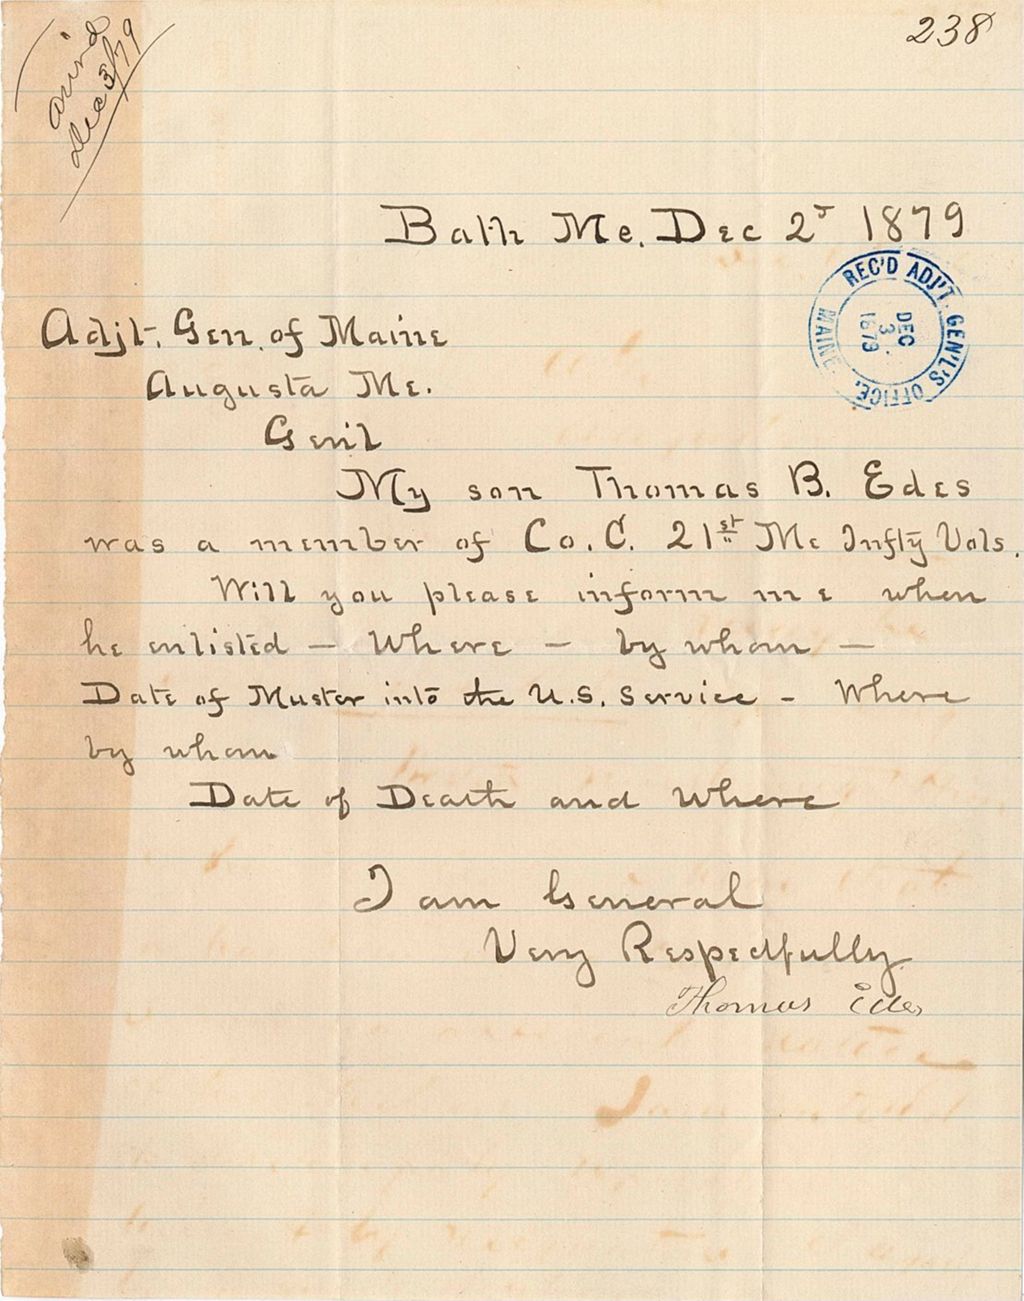 238
Dec 3/79
Bath Me. Dec 2d 1879
REC'D ADJ'T. GEN'L'S OFFICE, MAINE
DEC
3
1879
Adjt. Gen. of Maine
Augusta Me.
Genl
My son Thomas B. Edes
was a member of Co. C. 21st Me Infty Vols.
Will you please inform me when
he enlisted — Where — by whom —
Date of Muster into the U.S. Service - Where
by whom
Date of Death and Where
I am General
Very Respectfully
Thomas Edes